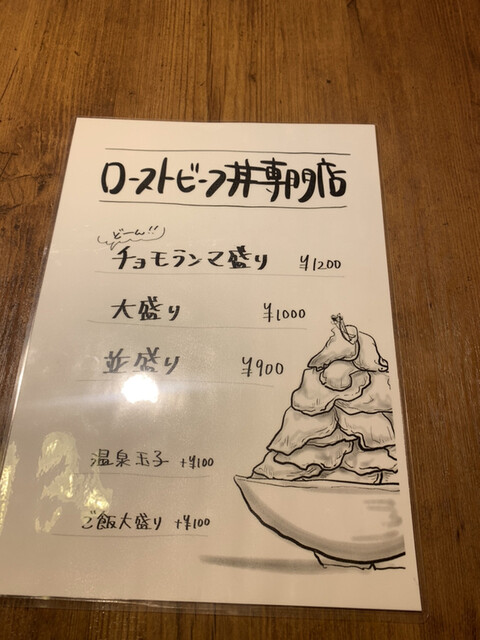 ローストビーフ丼専門店
どーん!!
チョモランマ盛り ¥1200
大盛り ¥1000
並盛り ¥900
温泉玉子 +¥100
ご飯大盛り +¥100